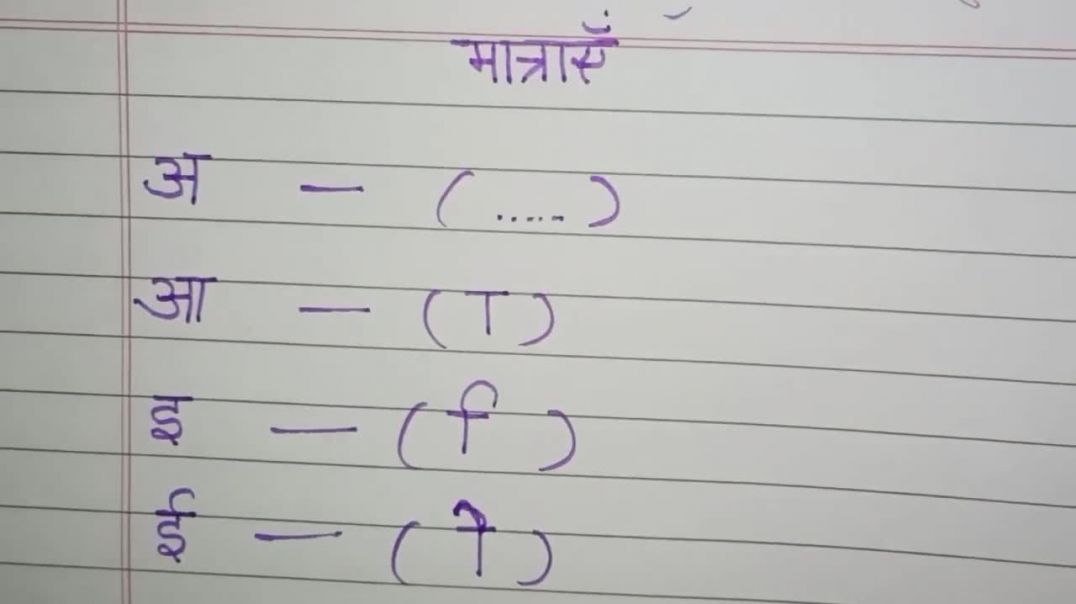 मात्राएँ
अ – (.....)
आ – (ा)
इ – (ि)
ई – (ी)